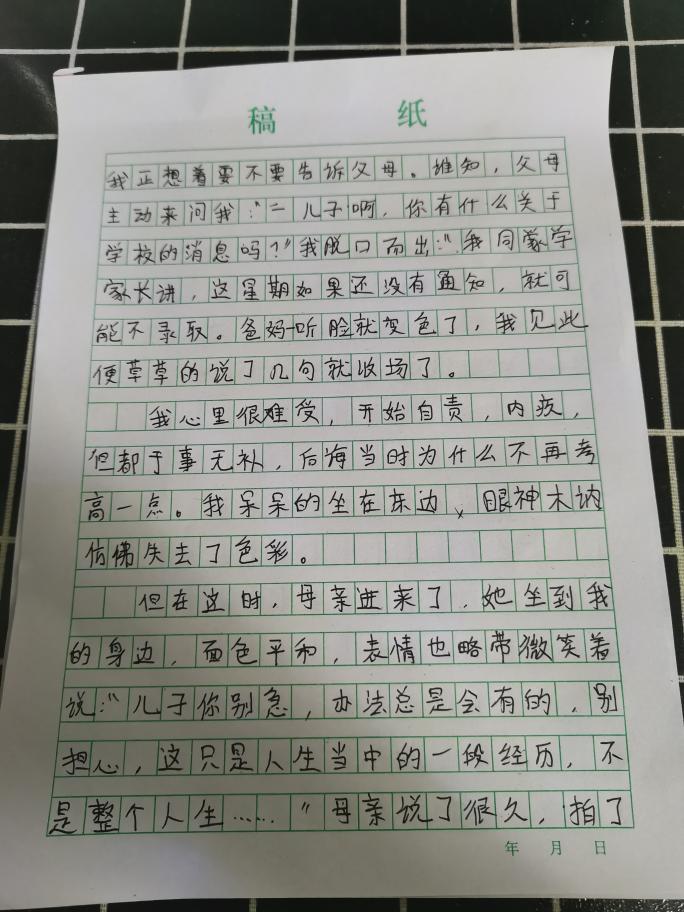 稿 纸
我正想着要不要告诉父母。谁知，父母
主动来问我："二儿子啊，你有什么关于
学校的消息吗？"我脱口而出："我同蒙学
家长讲，这星期如果还没有通知，就可
能不录取。爸妈一听脸就变色了，我见此
便草草的说了几句就收场了。
我心里很难受，开始自责，内疚，
但都于事无补，后悔当时为什么不再考
高一点。我呆呆的坐在东边，眼神木讷
仿佛失去了色彩。
但在这时，母亲进来了，她坐到我
的身边，面色平和，表情也略带微笑着
说："儿子你别急，办法总是会有的，别
担心，这只是人生当中的一段经历，不
是整个人生……"母亲说了很久，拍了
年 月 日